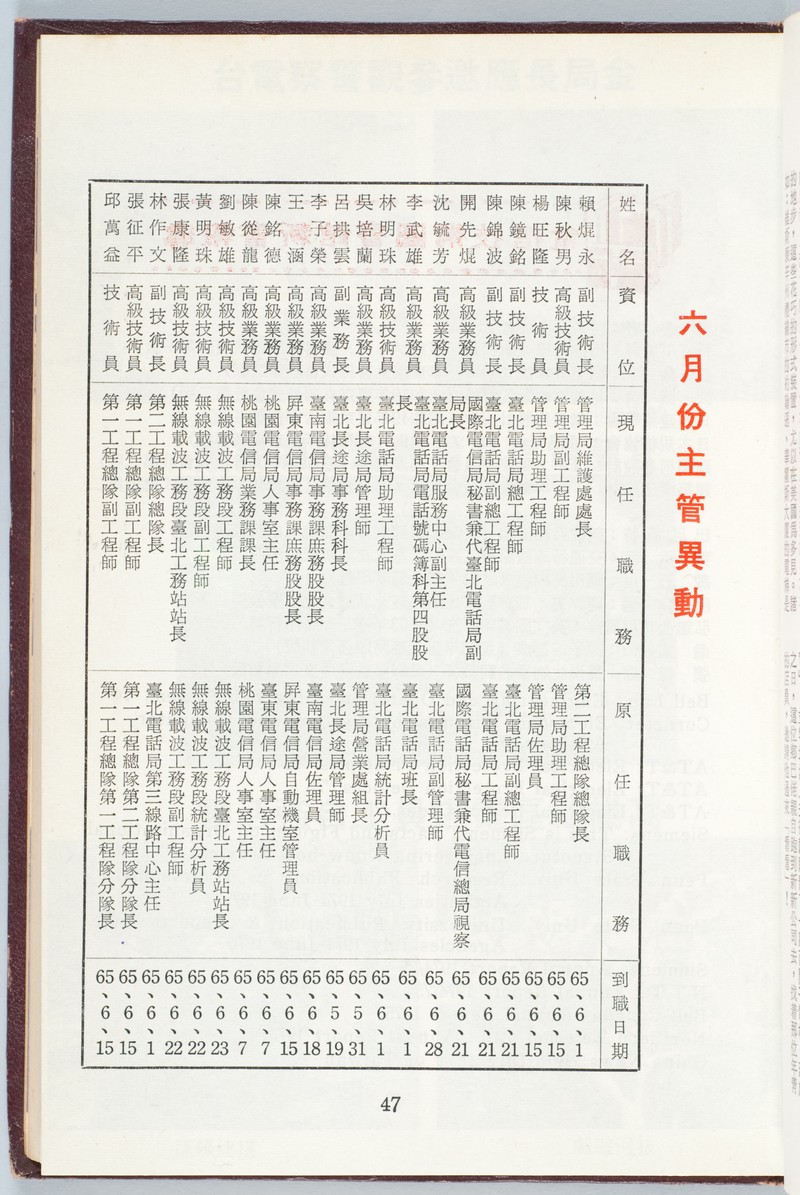 六月份主管異動
姓名 資位 現任職務 原任職務 到職日期
賴焜永 副技術長 管理局維護處處長 第二工程總隊總隊長 65、6、1
陳秋男 高級技術員 管理局副工程師 管理局助理工程師 65、6、15
楊旺隆 技術員 管理局助理工程師 管理局佐理員 65、6、15
陳鏡銘 副技術長 臺北電話局總工程師 臺北電話局副總工程師 65、6、21
陳錦波 副技術長 臺北電話局副總工程師 臺北電話局工程師 65、6、21
開先焜 高級業務員 國際電信局秘書兼代臺北電話局副局長 國際電話局秘書兼代電信總局視察 65、6、21
沈毓芳 高級業務員 臺北電話局服務中心副主任 臺北電話局副管理師 65、6、28
李武雄 高級業務員 臺北電話局電話號碼簿科第四股股長 臺北電話局班長 65、6、1
林明珠 高級技術員 臺北電話局助理工程師 臺北電話局統計分析員 65、6、1
吳培蘭 高級業務員 臺北長途局管理師 管理局營業處組長 65、5、31
呂拱雲 副業務長 臺北長途局事務科科長 臺北長途局管理師 65、5、19
李子榮 高級業務員 臺南電信局事務課庶務股股長 臺南電信局佐理員 65、6、18
王涵 高級業務員 屏東電信局事務課庶務股股長 屏東電信局自動機室管理員 65、6、15
陳銘德 高級業務員 桃園電信局人事室主任 臺東電信局人事室主任 65、6、7
陳從龍 高級業務員 桃園電信局業務課課長 桃園電信局人事室主任 65、6、7
劉敏雄 高級技術員 無線載波工務段工程師 無線載波工務段臺北工務站站長 65、6、23
黃明珠 高級技術員 無線載波工務段副工程師 無線載波工務段統計分析員 65、6、22
張康隆 高級技術員 無線載波工務段臺北工務站站長 無線載波工務段副工程師 65、6、22
林作文 副技術長 第二工程總隊總隊長 臺北電話局第三線路中心主任 65、6、1
張征平 高級技術員 第一工程總隊副工程師 第一工程總隊第二工程隊分隊長 65、6、15
邱萬益 技術員 第一工程總隊副工程師 第一工程總隊第一工程隊分隊長 65、6、15
47